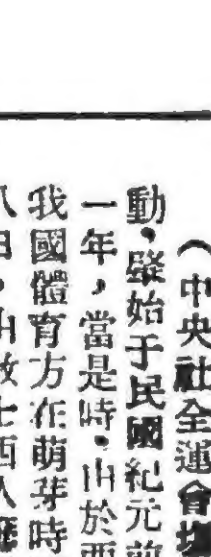 (中央社全運會
動,肇始于民國紀元前
一年,當是時,由於
我國體育方在萌芽時